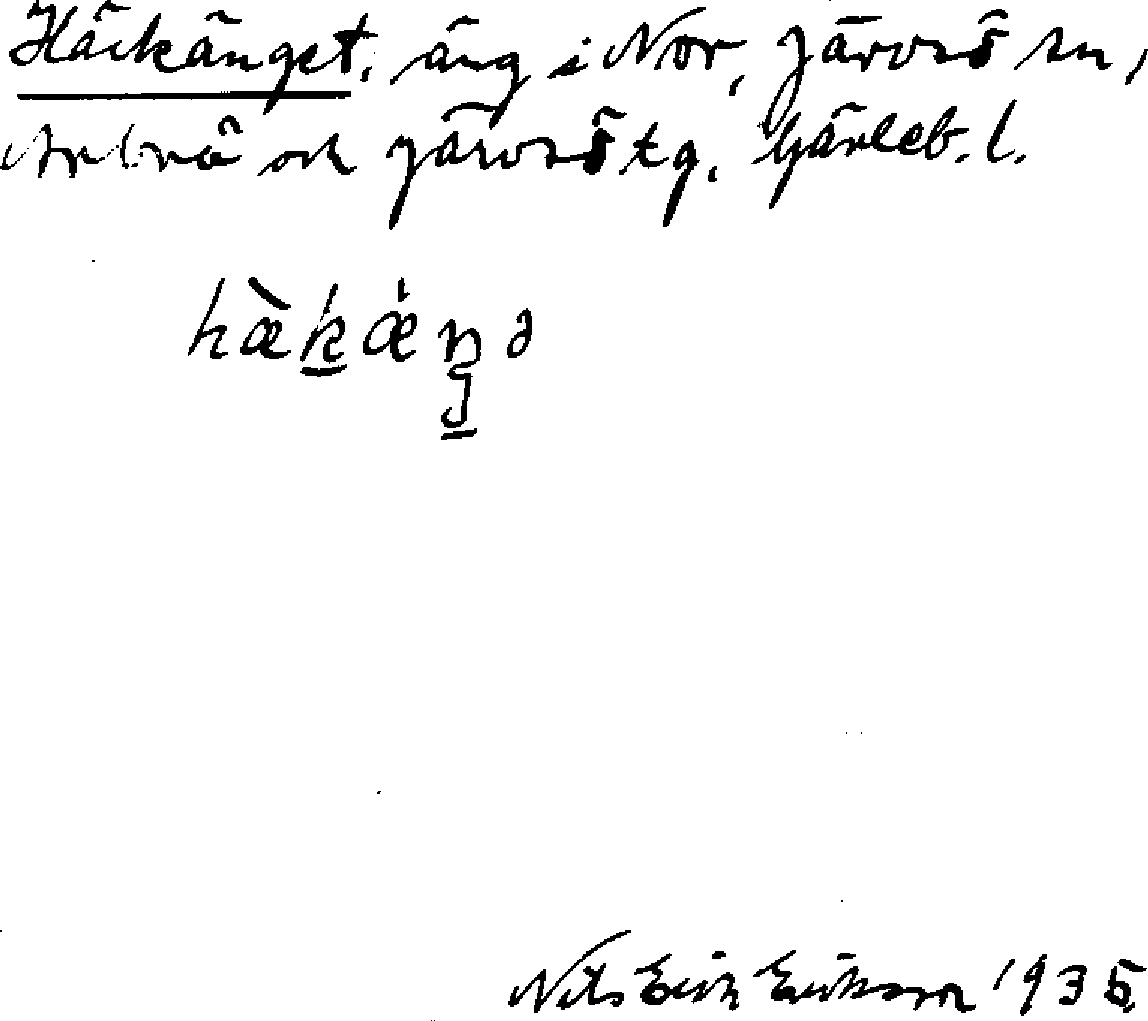 Häckänget, äng i Nor, Järvsö sn,
Arbrå och Järvsö tg. Gävleb. l.
hæ̀kæ̇ŋə
Nils Erik Eriksson 1935